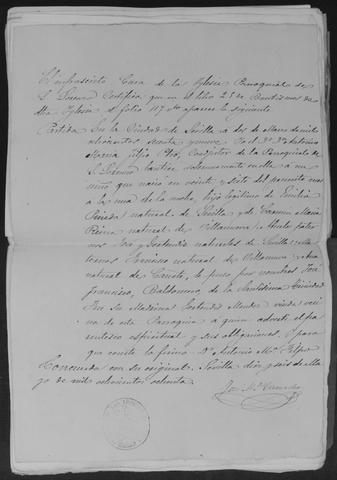 El infrascrito Cura de la Iglesia Parroquial de
S. Lorenzo Certifica que en el libro 25 de Bautismos de
dha Iglesia al folio 117 vto aparece la siguiente
Partida En la Ciudad de Sevilla a dos de Marzo de mil
ochocientos setenta y nueve Yo el Dr Dn Antonio
Maria Coadjutor de la Parroquial de
S. Lorenzo bautice solemnemente en ella a un
niño que nacio en veinte y siete del
a la una de la noche, hijo legitimo de Emilio
Pineda natural de Sevilla y de Carmen Maria
natural de Villanueva: Abuelos pater
nos José y Gertrudis naturales de Sevilla: Ma
ternos natural de Villanueva y
natural de se le puso por nombres José
Francisco, Baldomero, de la Santisima Trinidad
Fue su Madrina Gertrudis Mendez viuda veci
na de esta Parroquia a quien adverti el pa
rentesco espiritual y sus obligaciones. Y para
que conste lo firmo. Dr Antonio Ma
Concuerda con su original. Sevilla diez y seis de Ma
yo de mil ochocientos ochenta